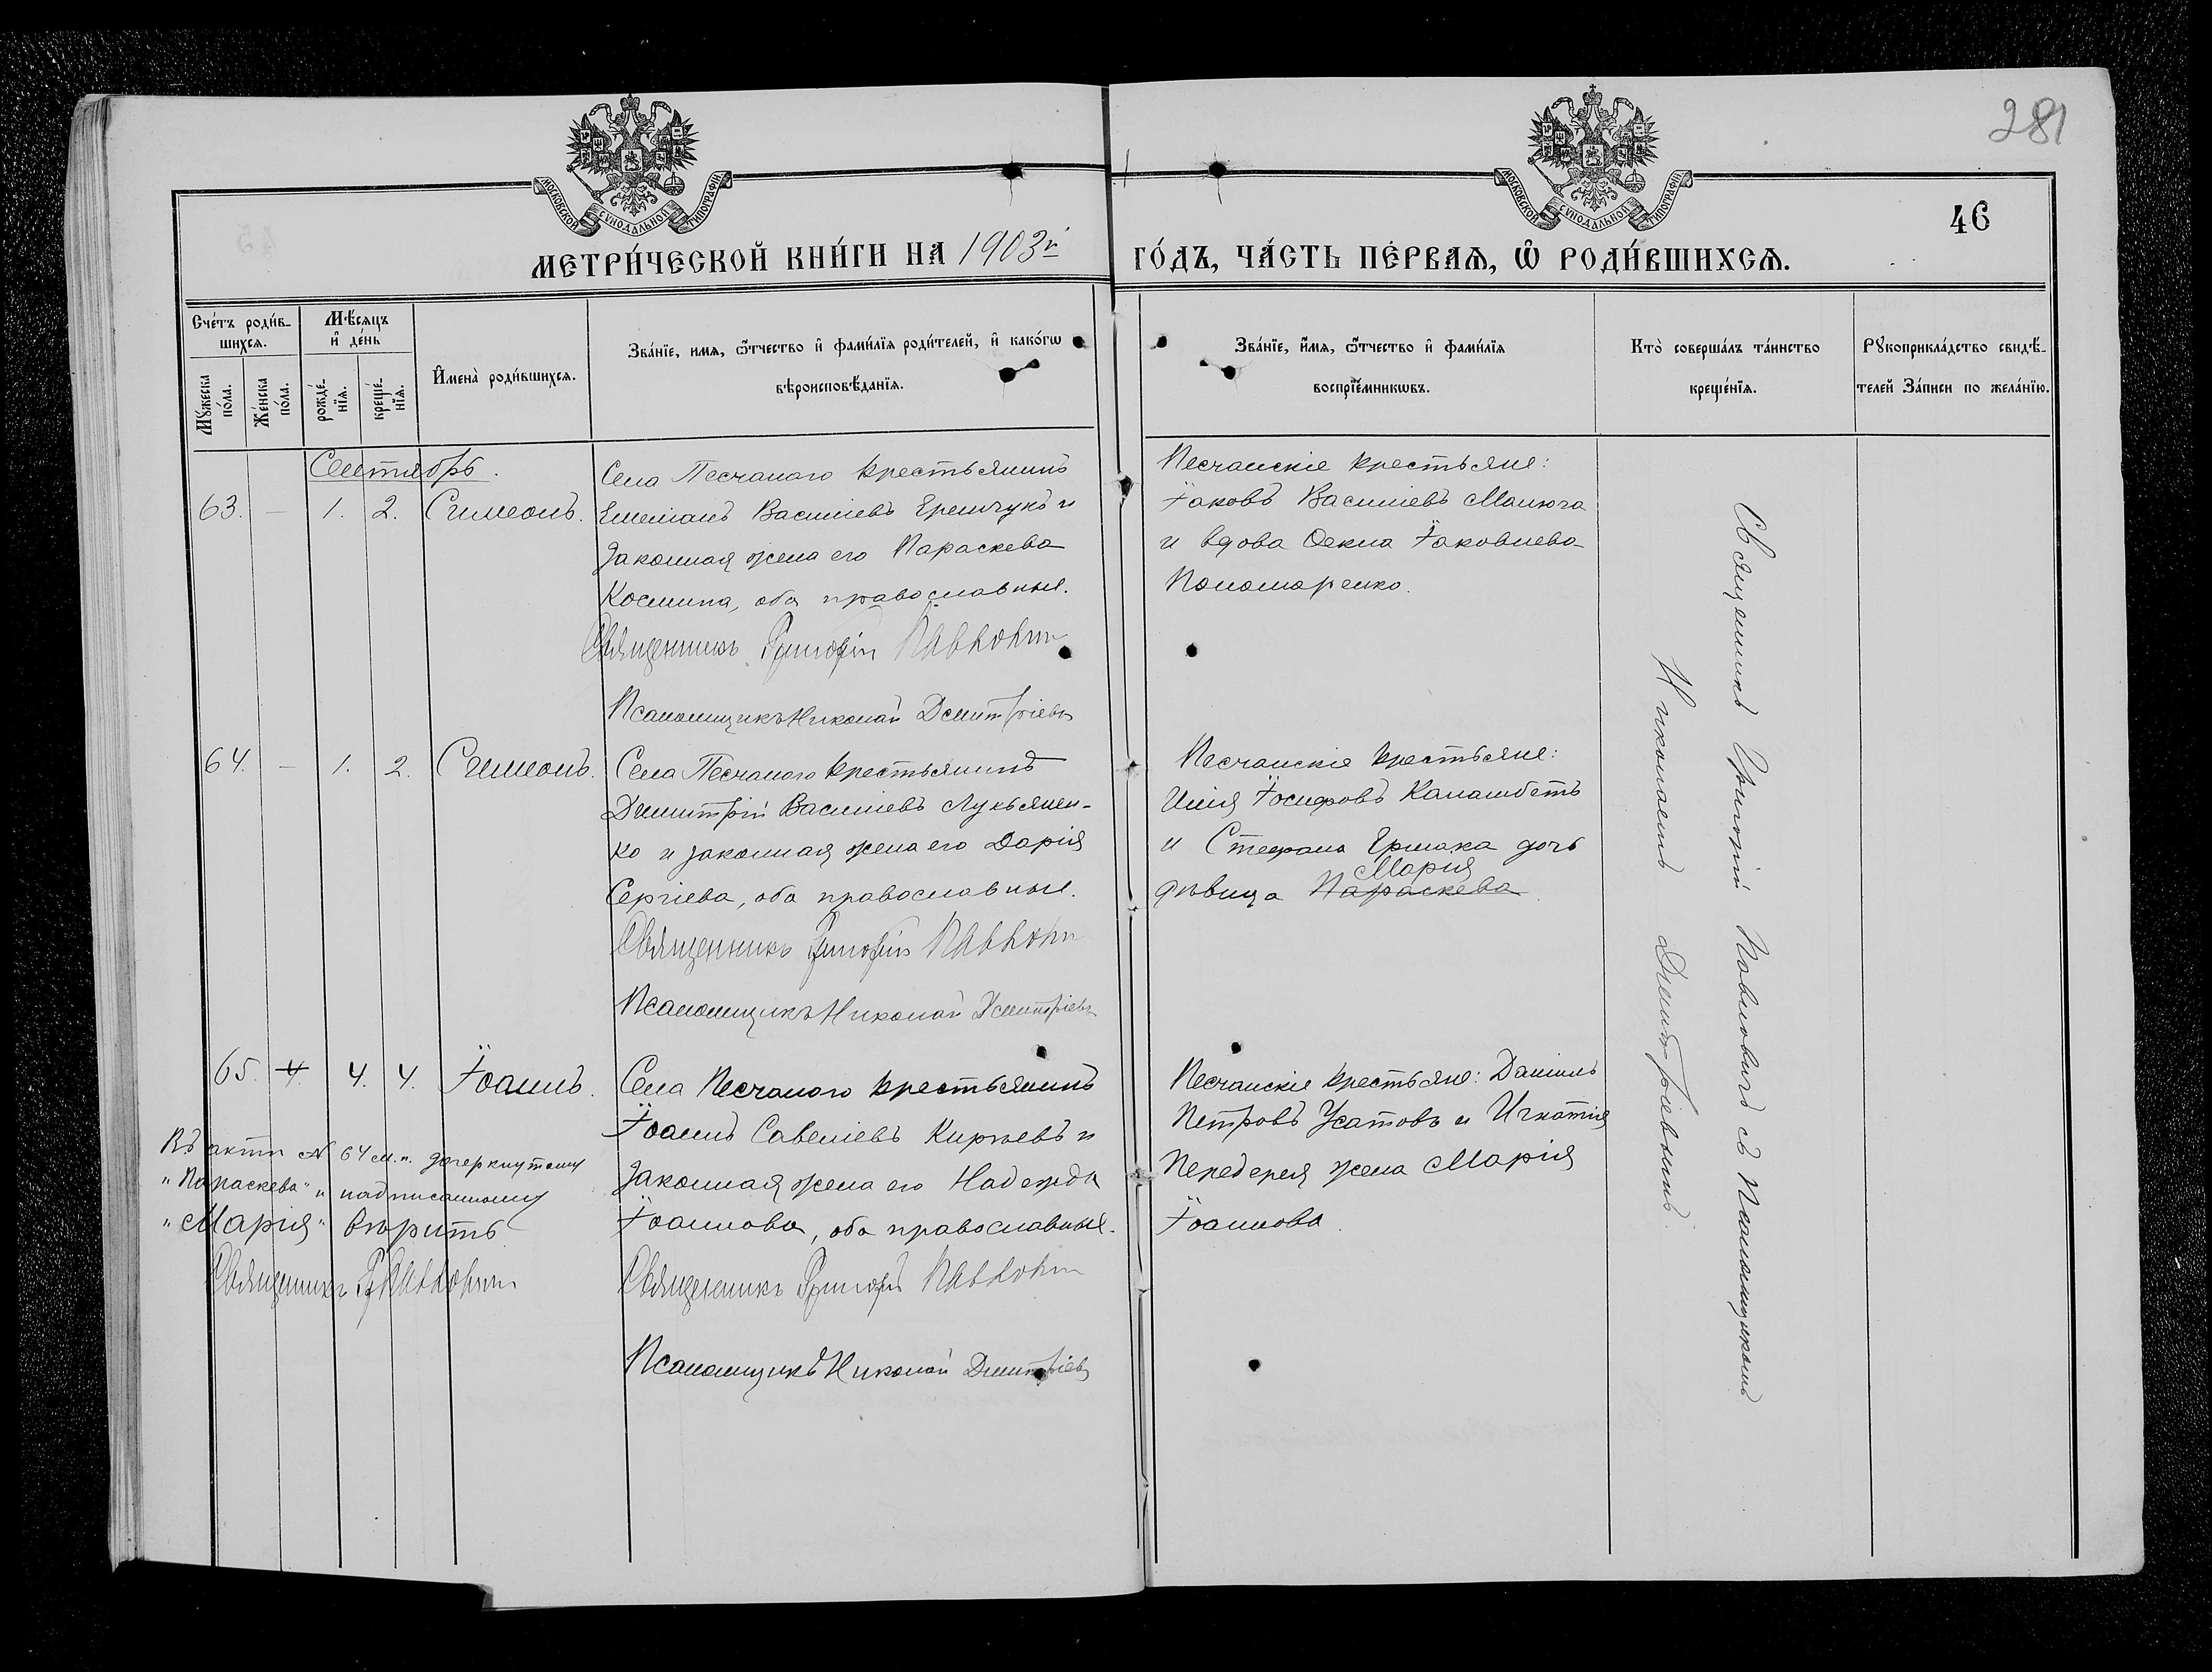 281
46
МОСКОВСКОЙ СѴНОДАЛЬНОЙ ТИПОГРАФІИ
МОСКОВСКОЙ СѴНОДАЛЬНОЙ ТИПОГРАФІИ
МЕТРИ́ЧЕСКОЙ КНИ́ГИ НА 1903й ГО́ДЪ, ЧА́СТЬ ПЕ́РВАѦ, Ѡ РОДИ́ВШИХСѦ.
Сче́тъ роди́в-
шихсѧ.
Мꙋжеска по́ла.
Же́нска по́ла.
Мѣ́сѧцъ и де́нь
рожде́-нїѧ.
креще́-нїѧ.
Имена̀ роди́вшихсѧ.
Зва́нїе, имѧ, ѻтчество и фами́лїѧ роди́телей, и како́гѡ
вѣроисповѣ́данїѧ.
Зва́нїе, и́мѧ, ѻтчество и фами́лїѧ
воспрїе́мникѡвъ.
Кто̀ соверша́лъ та́инство
креще́нїѧ.
Рꙋкоприкла́дство свидѣ́-
телей За́писи по жела́нїю.
Сентябрь.
63. — 1. 2. Симеонъ.
Села Песчаного крестьянинъ
Емеліанъ Василіевъ Еремчукъ и
законная жена его Параскева
Космина, оба православные.
Священникъ Григорій Павлович
Псаломщикъ Николай Димитріевъ
Песчанскіе крестьяне:
Іаковъ Василіевъ Манюга
и вдова Ѳекла Іаковлева
Пономаренко.
64. — 1. 2. Симеонъ.
Села Песчаного крестьянинъ
Димитрій Василіевъ Лукьянен-
ко и законная жена его Дарія
Сергіева, оба православные.
Священникъ Григорій Павлович
Псаломщикъ Николай Димитріевъ
Песчанскіе крестьяне:
Илія Іосифовъ Калашбетъ
и Стефана Ермака дочь
Марія
дѣвица Параскева.
65. 4. 4. 4. Іоаннъ.
Села Песчаного крестьянинъ
Іоаннъ Савеліевъ Кирѣевъ и
законная жена его Надежда
Іоаннова, оба православные.
Священникъ Григорій Павлович
Псаломщикъ Николай Димитріевъ
Песчанскіе крестьяне: Даніилъ
Петровъ Усатовъ и Игнатія
Передерея жена Марія
Іоаннова.
Въ актѣ № 64 м.п. зачеркнутому
„Параскева" и надписанному
„Марія" вѣрить
Священникъ Гр Павлович
Священникъ Григорій Павловичъ съ Псаломщикомъ
Николаемъ Димитріевымъ.